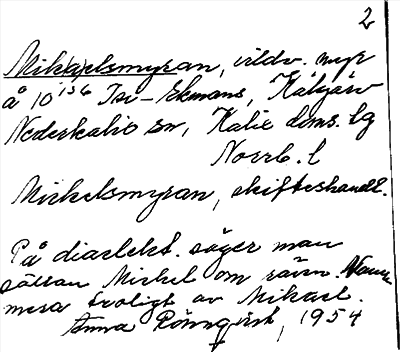 2
Mikkelsmyran, vildv. myr
å 10¹³⁶ Isi-Ekmans, Kälvjärv
Nederkalix sn, Kalix doms. lg
Norrb. l
Mickelsmyran, skifteshandl.
På dialekt. säger man
sällan Mickel om räven. Namn
mera troligt av Mikael.
Anna Rönnqvist, 1954